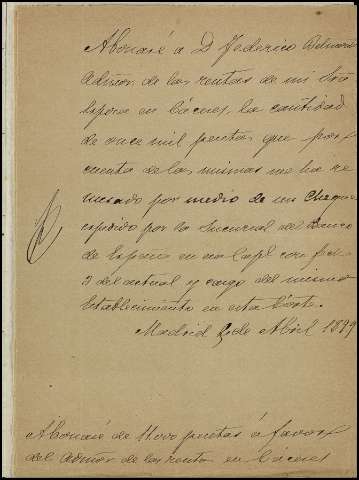 Abonaré a D. Federico Belmonte
Admor. de las rentas de mi
Esposa en Cáceres, la cantidad
de once mil pesetas que por
cuenta de las mismas me ha re
mesado por medio de un Cheque
expedido por la Sucursal del Banco
de España en con fcha
3 del actual y cargo del mismo
Establecimiento en esta Corte.
Madrid de Abril 1899
Abonaré de 11.000 pesetas á favor
del Admor. de las rentas en Cáceres